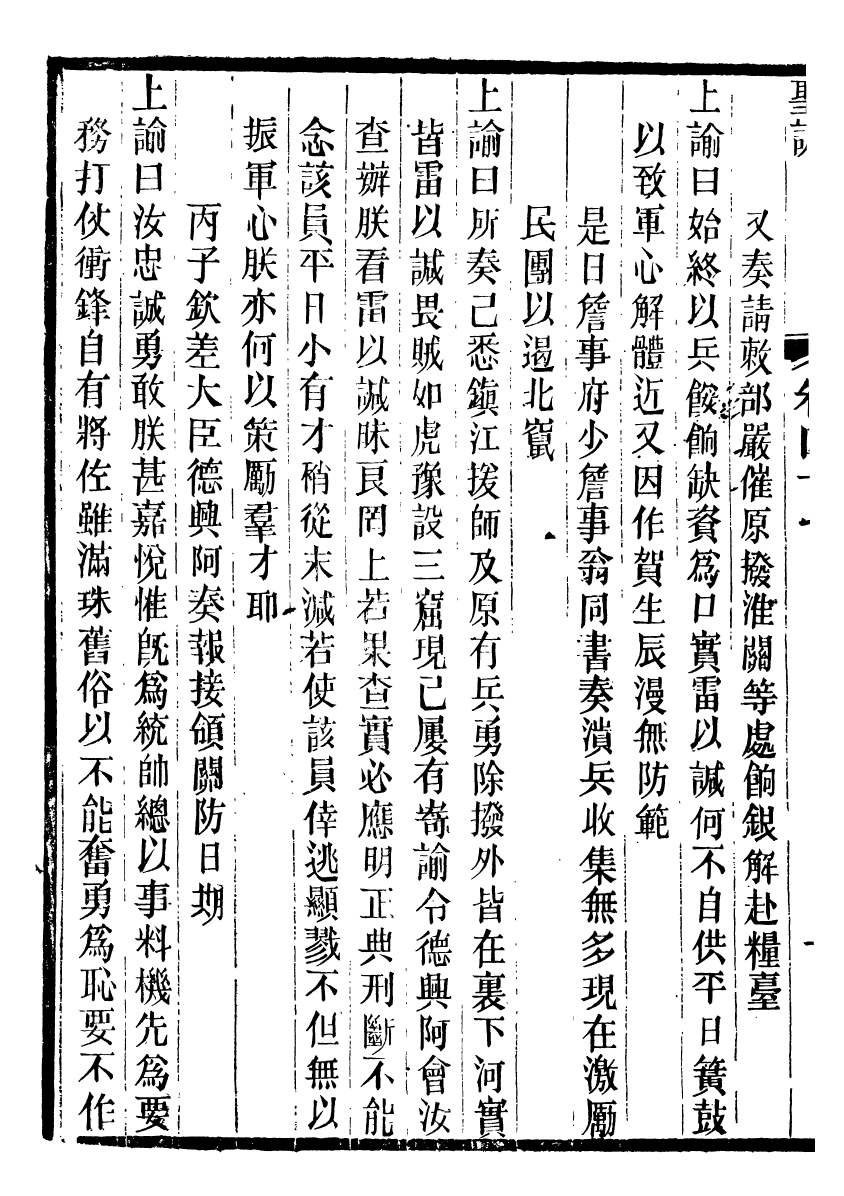 聖訓
又奏請敕部嚴催原撥淮關等處餉銀解赴糧臺
上諭曰始終以兵餒餉缺資為口實雷以諴何不自供平日簧鼓
以致軍心解體近又因作賀生辰漫無防範
是日詹事府少詹事翁同書奏潰兵收集無多現在激厲
民團以遏北竄
上諭曰所奏已悉鎮江援師及原有兵勇除撥外皆在裏下河實
皆雷以諴畏賊如虎豫設三窟現已屢有寄諭令德興阿會汝
查辦朕看雷以諴昧良罔上若果查實必應明正典刑斷不能
念該員平日小有才稍從末減若使該員倖逃顯戮不但無以
振軍心朕亦何以策勵羣才耶
丙子欽差大臣德興阿奏報接領關防日期
上諭曰汝忠誠勇敢朕甚嘉悅惟既為統帥總以事料機先為要
務打仗衝鋒自有將佐雖滿珠舊俗以不能奮勇為恥要不作